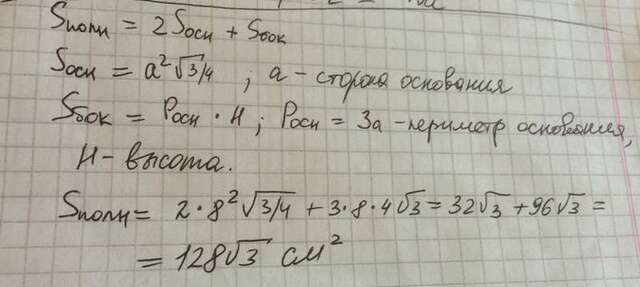 Sполн = 2Sосн + Sбок
Sосн = a²√3/4 ; a - сторона основания
Sбок = Pосн · H ; Pосн = 3a - периметр основания,
H - высота.
Sполн = 2·8²√3/4 + 3·8·4√3 = 32√3 + 96√3 =
= 128√3 см²